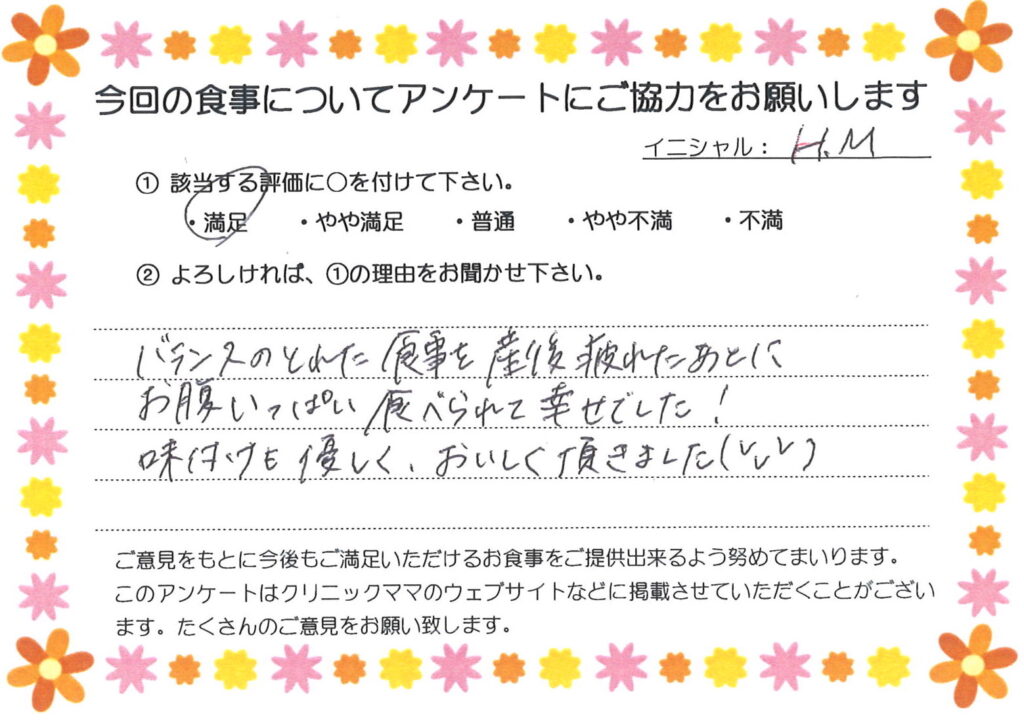 今回の食事についてアンケートにご協力をお願いします
イニシャル： H.M
① 該当する評価に○を付けて下さい。
・満足 ・やや満足 ・普通 ・やや不満 ・不満
② よろしければ、①の理由をお聞かせ下さい。
バランスのとれた食事を産後疲れたあとに
お腹いっぱい食べられて幸せでした！
味付けも優しく、おいしく頂きました(
ご意見をもとに今後もご満足いただけるお食事をご提供出来るよう努めてまいります。
このアンケートはクリニックママのウェブサイトなどに掲載させていただくことがござい
ます。たくさんのご意見をお願い致します。